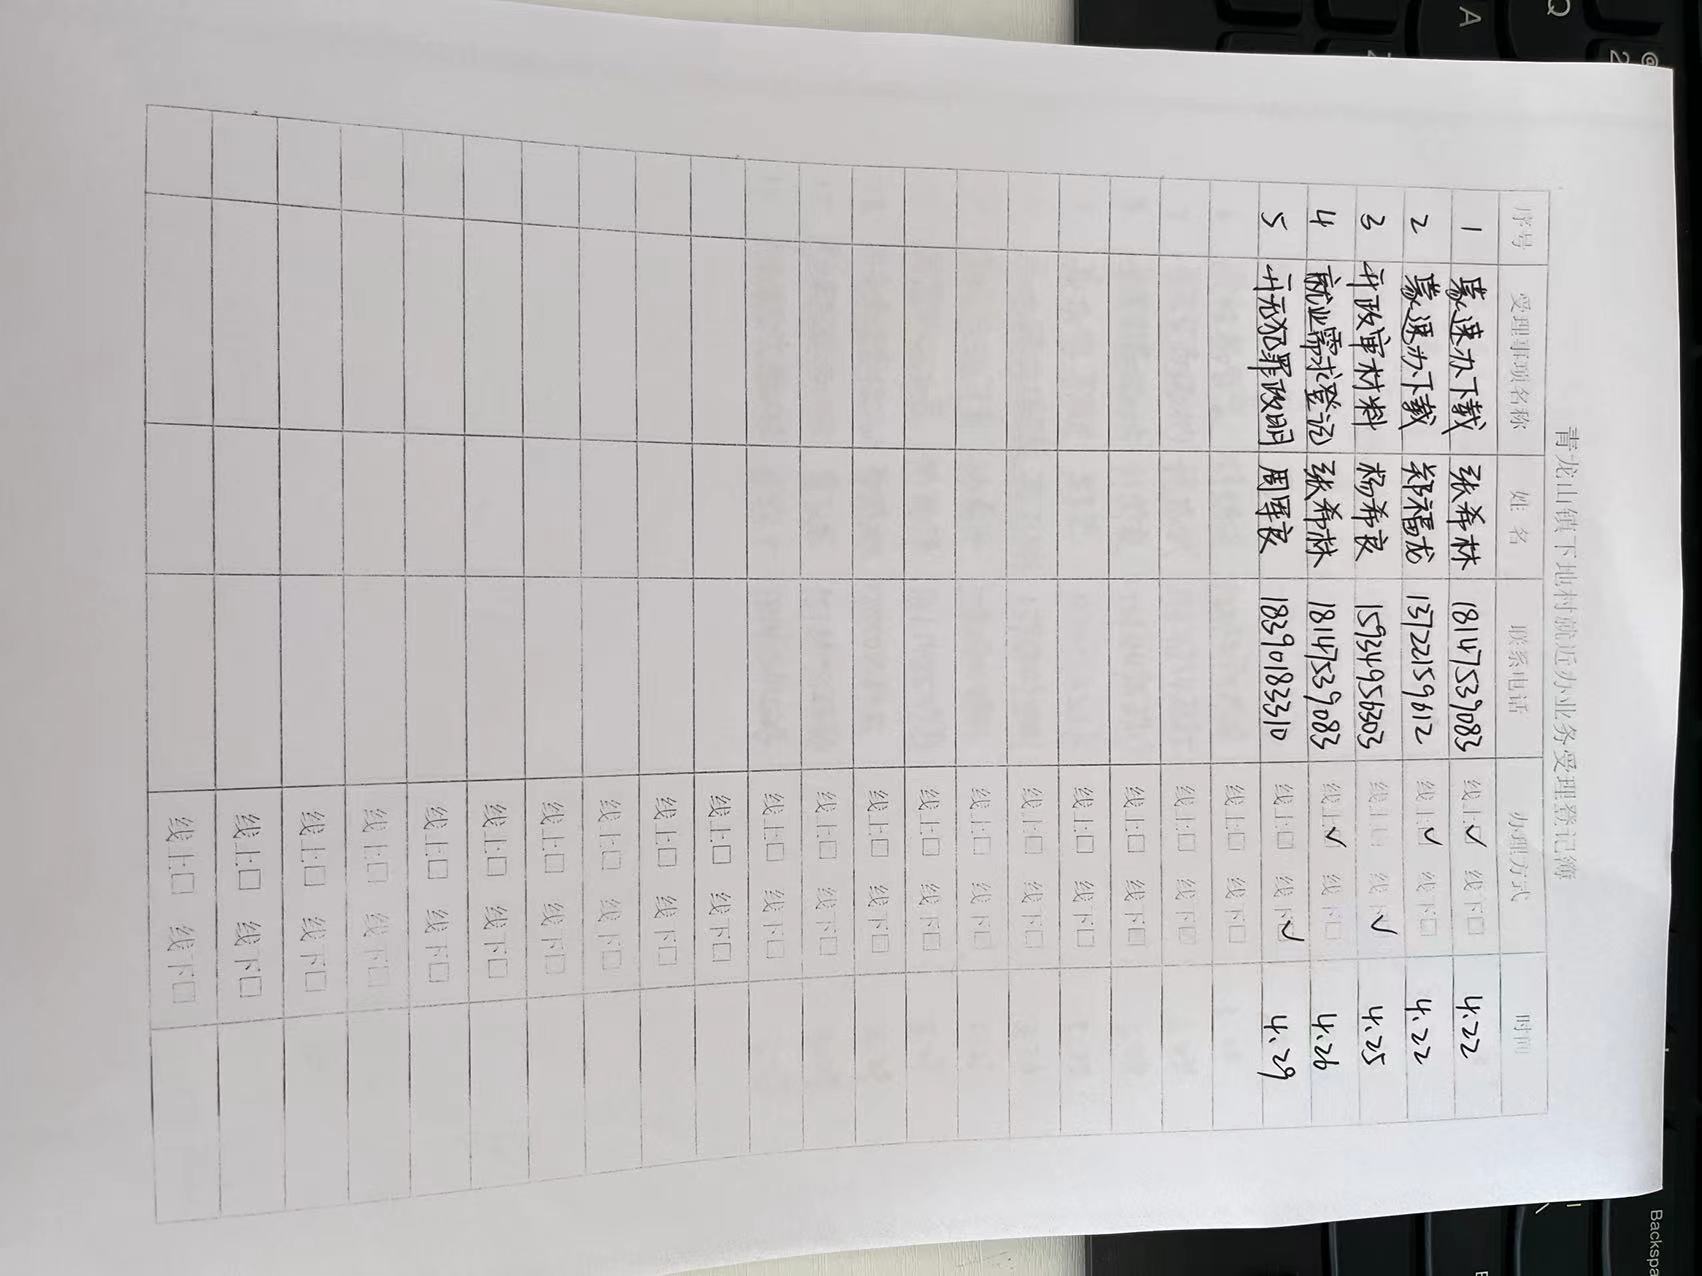 青龙山镇下地村就近办业务受理登记簿
序号 受理事项名称 姓 名 联系电话 办理方式 时间
1 蒙速办下载 张希林 18147539083 线上☑ 线下□ 4.22
2 蒙速办下载 郑福龙 13722159612 线上☑ 线下□ 4.22
3 开政审材料 杨希良 15934956303 线上□ 线下☑ 4.25
4 就业需求登记 张希林 18147539083 线上☑ 线下□ 4.26
5 开无犯罪证明 周军良 18390183310 线上□ 线下☑ 4.29
线上□ 线下□
线上□ 线下□
线上□ 线下□
线上□ 线下□
线上□ 线下□
线上□ 线下□
线上□ 线下□
线上□ 线下□
线上□ 线下□
线上□ 线下□
线上□ 线下□
线上□ 线下□
线上□ 线下□
线上□ 线下□
线上□ 线下□
线上□ 线下□
线上□ 线下□
线上□ 线下□
线上□ 线下□
线上□ 线下□
线上□ 线下□
Q
A
2
Backspa